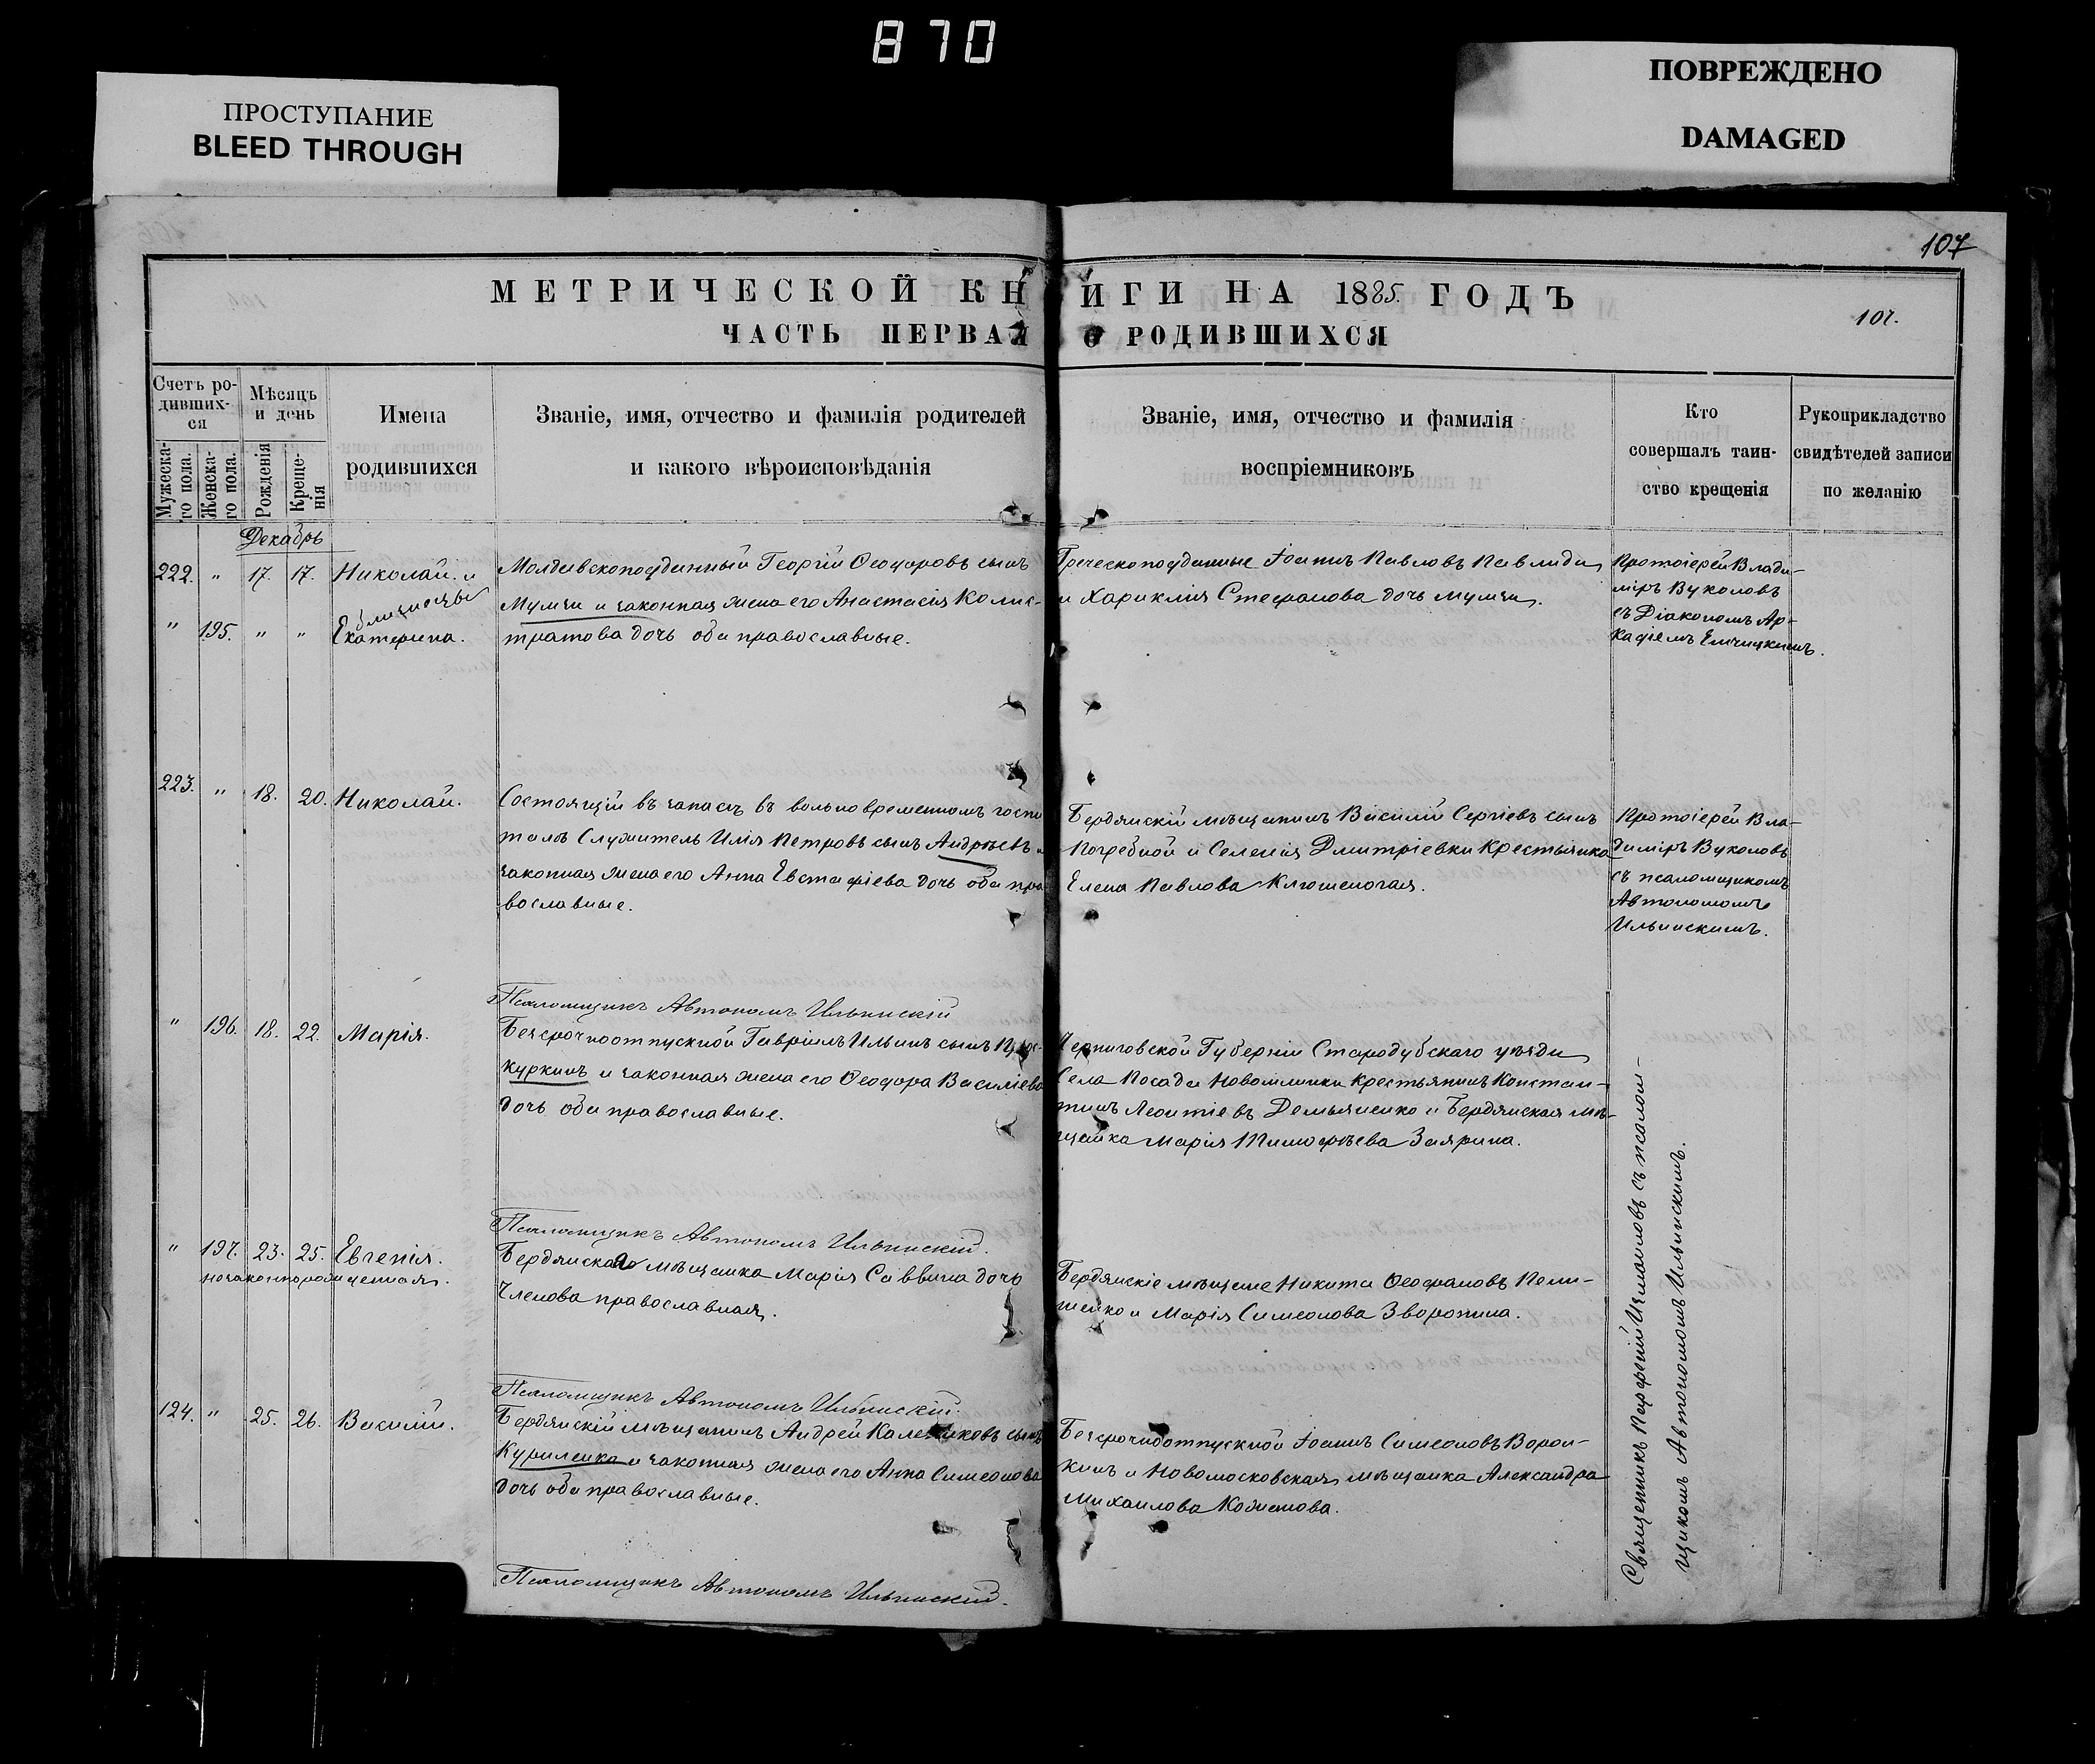 870
ПРОСТУПАНИЕ
BLEED THROUGH
ПОВРЕЖДЕНО
DAMAGED
107
МЕТРИЧЕСКОЙ КНИГИ НА 1885. ГОДЪ
107.
ЧАСТЬ ПЕРВАЯ О РОДИВШИХСЯ
Счетъ ро-
дивших-
ся
Мужеска-
го пола.
Женска-
го пола.
Мѣсяцъ
и день
Рожденія
Креще-
нія
Имена
родившихся
Званіе, имя, отчество и фамилія родителей
и какого вѣроисповѣданія
Званіе, имя, отчество и фамилія
воспріемниковъ
Кто
совершалъ таин-
ство крещенія
Рукоприкладство
свидѣтелей записи
по желанію
Декабрь
222. " 17. 17. Николай. и
близнецы
" 195. " " Екатерина.
Молдавскоподданный Георгій Ѳеодоровъ сынъ
Мумчи и законная жена его Анастасія Калис-
тратова дочь оба православные.
Греческоподданные Іоаннъ Павловъ Павлиди
и Хариклія Стефанова дочь Мумчи.
Протоіерей Влади-
міръ Вуколовъ
съ Діакономъ Ар-
кадіемъ
223. " 18. 20. Николай.
Состоящій въ запасѣ въ вольно временномъ госпи
талѣ Служитель Илія Петровъ сынъ Андреевъ и
законная жена его Анна Евстафіева дочь оба пра
вославные.
Бердянскій мѣщанинъ Василій Сергіевъ сынъ
Погребной и Селенія Дмитріевки Крестьянка
Елена Павлова
Протоіерей Вла-
диміръ Вуколовъ
съ псаломщикомъ
Автономомъ
Ильинскимъ.
Псаломщикъ Автономъ Ильинскій
" 196. 18. 22. Марія.
Безсрочноотпускной Гавріилъ Ильинъ сынъ
куркинъ и законная жена его Ѳеодора Василіева
дочь оба православные.
Черниговской Губерніи Стародубскаго уѣзда
Села Посада Новомлинки Крестьянинъ Констан-
тинъ Леонтіевъ Демьяненко и Бердянская мѣ-
щанка Марія Тимофѣева Заярина.
Псаломщикъ Автономъ Ильинскій.
" 197. 23. 25. Евгенія.
незаконнорожденная.
Бердянская мѣщанка Марія Саввина дочь
Членова православная.
Бердянскіе мѣщане Никита Ѳеофановъ Пели-
шенко и Марія Симеонова Зворыкина.
Псаломщикъ Автономъ Ильинскій.
124. " 25. 26. Василій.
Бердянскій мѣщанинъ Андрей Калениковъ сынъ
Куриленко и законная жена его Анна Симеонова
дочь оба православные.
Безсрочноотпускной Іоаннъ Симеоновъ Ворон-
кинъ и Новомосковская мѣщанка Александра
Михаилова Кожанова.
Священникъ Парфеній Измаиловъ съ псалом-
щикомъ Автономомъ Ильинскимъ.
Псаломщикъ Автономъ Ильинскій.